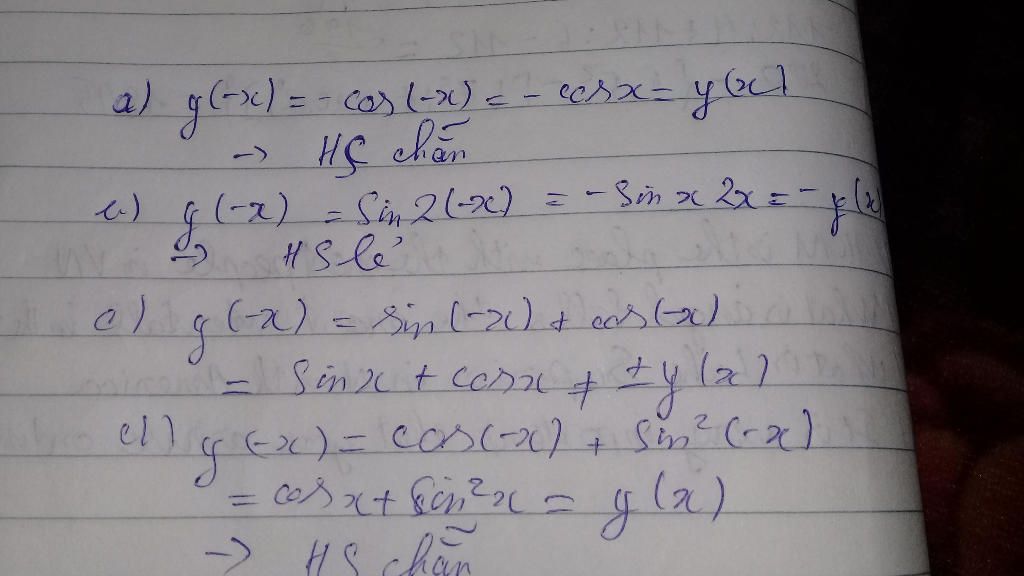 a) y(-x) = - cos(-x) = - cosx = y(x)
-> HS chẵn
b) y(-x) = Sin 2(-x) = - Sin x 2x = - y(x)
-> HS lẻ
c) y(-x) = sin(-x) + cos(-x)
= Sinx + cosx ≠ ± y(x)
d) y(-x) = cos(-x) + Sin²(-x)
= cos x + Sin²x = y(x)
-> HS chẵn